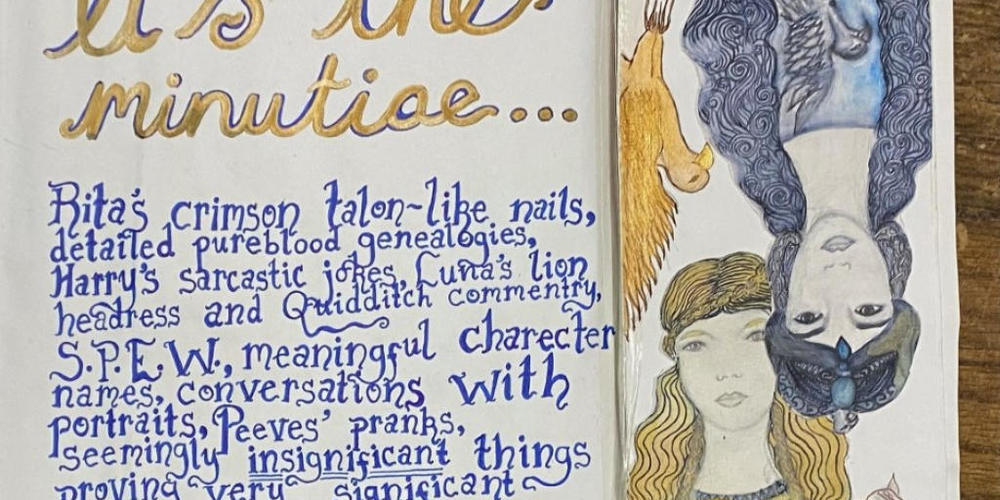 It's the
minutiae...
Rita's crimson talon-like nails,
detailed pureblood genealogies,
Harry's sarcastic jokes, Luna's lion
headress and Quidditch commentry,
S.P.E.W., meaningful charecter
names, conversations with
portraits, Peeves' pranks,
seemingly insignificant things
proving very significant